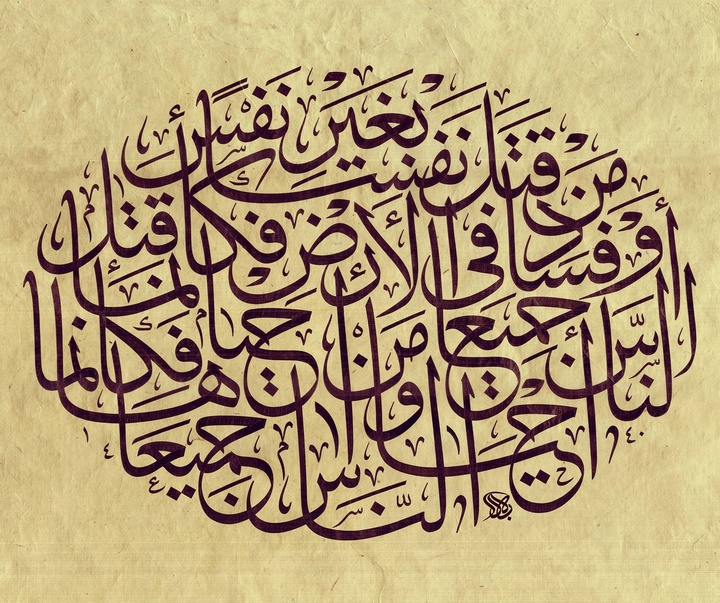 من قتل نفسا بغير نفس
أو فساد في الأرض فكأنما قتل
الناس جميعا ومن أحياها فكأنما
أحيا الناس جميعا